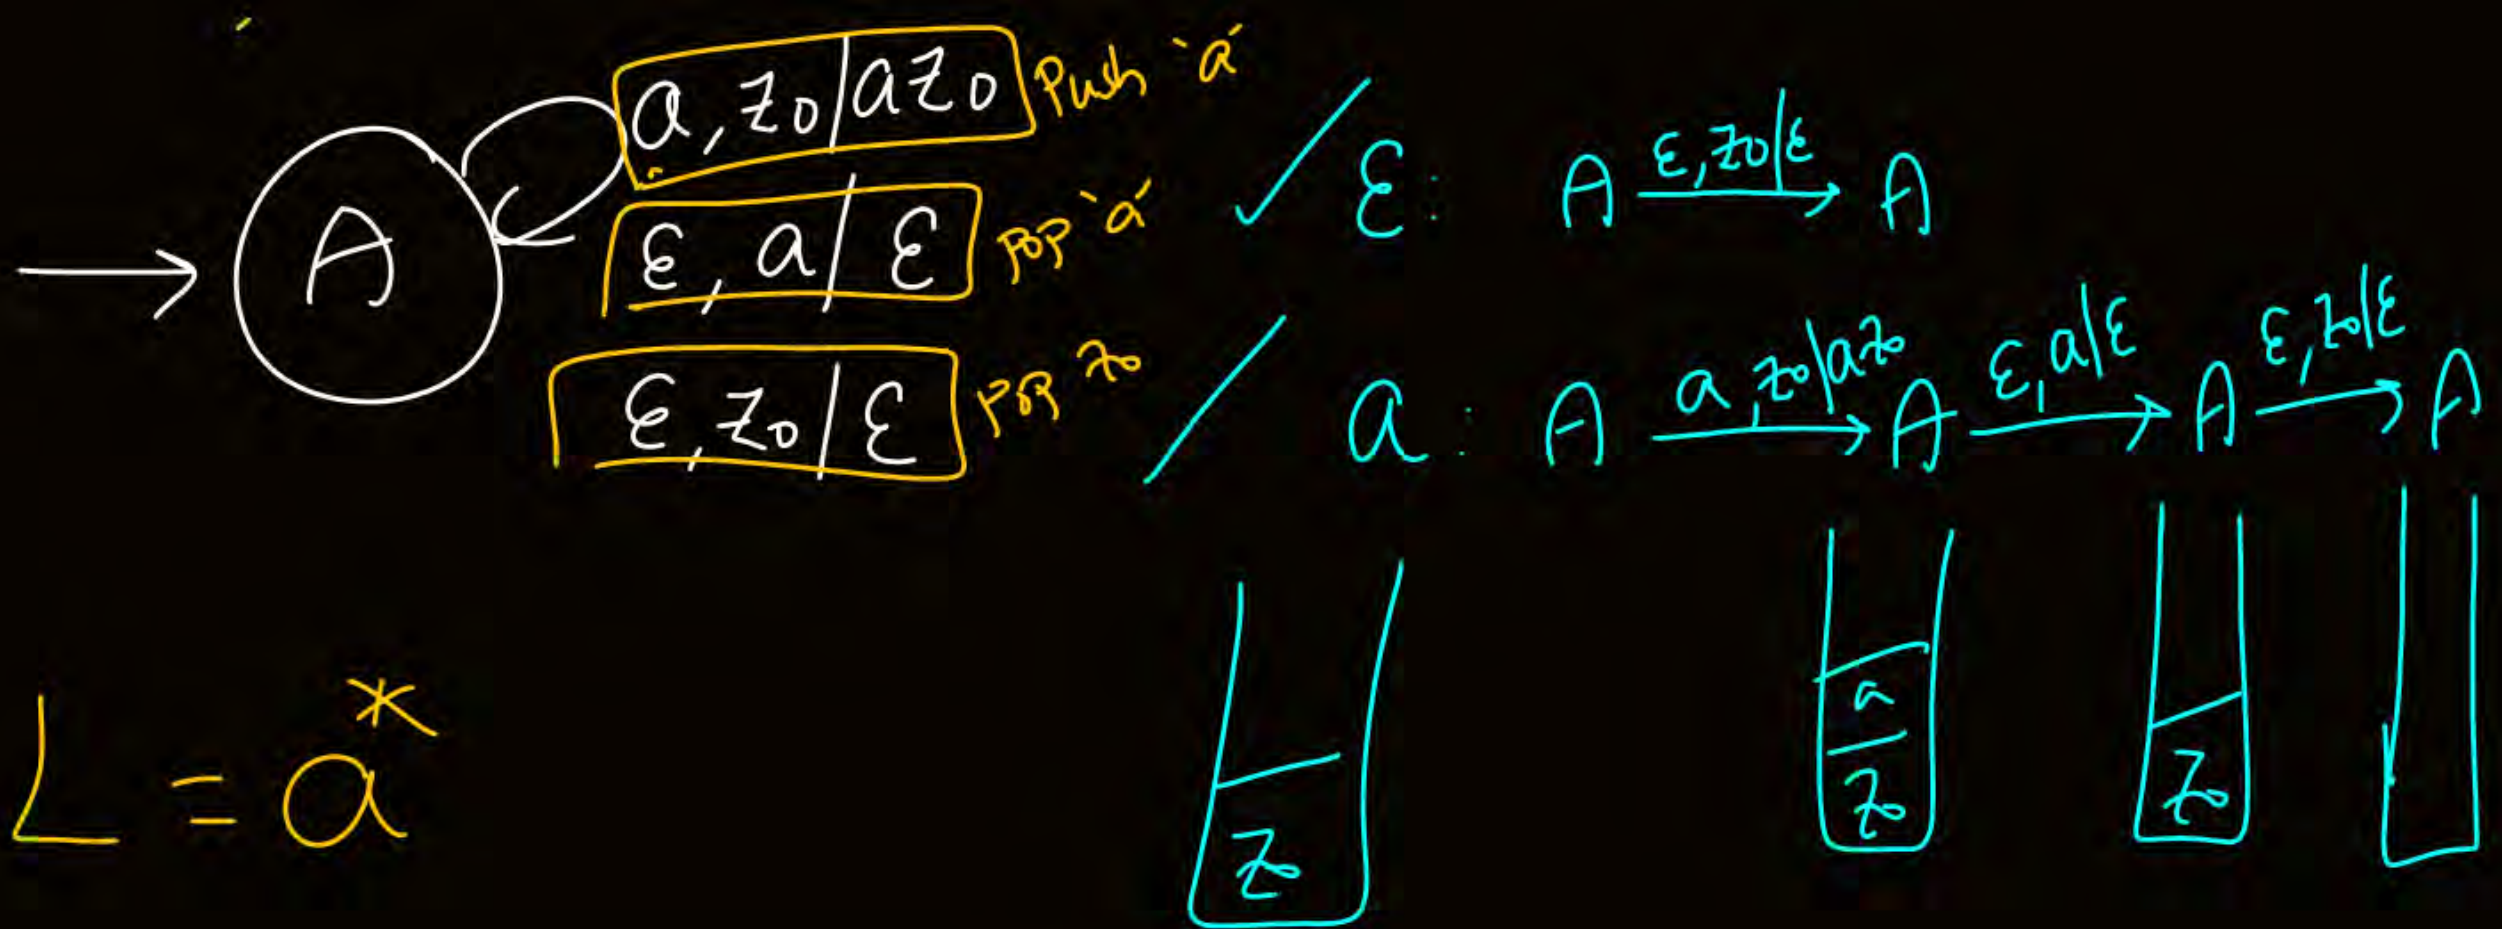 a, z0 | az0 Push 'a'
ε, a | ε pop 'a'
ε, z0 | ε pop z0
A
L = a*
ε: A ε, z0|ε A
a: A a, z0|az0 A ε, a|ε A ε, z0|ε A
z0
a
z0
z0